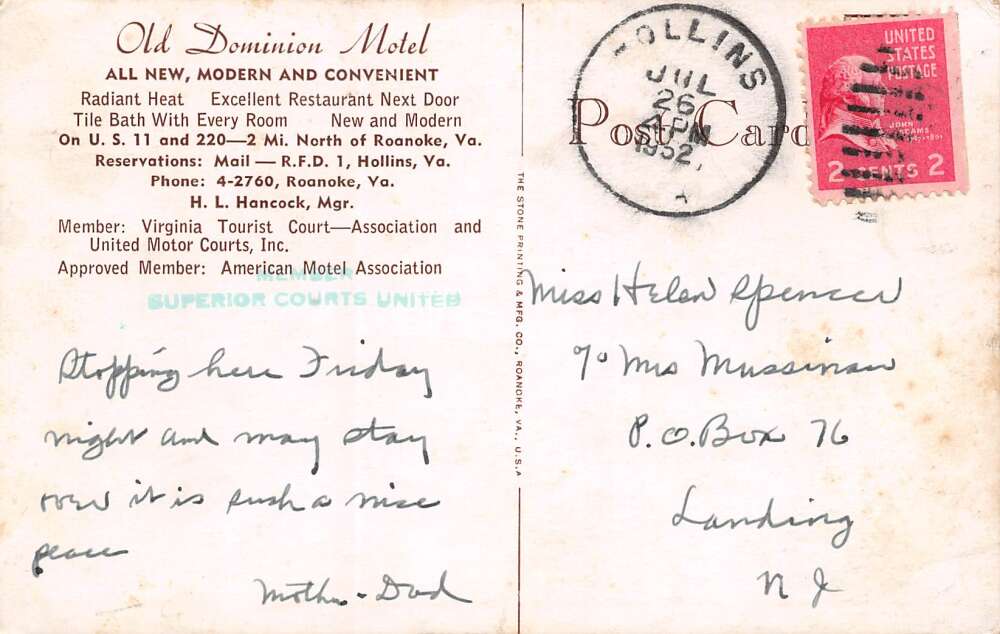 Old Dominion Motel
ALL NEW, MODERN AND CONVENIENT
Radiant Heat Excellent Restaurant Next Door
Tile Bath With Every Room New and Modern
On U. S. 11 and 220—2 Mi. North of Roanoke, Va.
Reservations: Mail — R.F.D. 1, Hollins, Va.
Phone: 4-2760, Roanoke, Va.
H. L. Hancock, Mgr.
Member: Virginia Tourist Court—Association and
United Motor Courts, Inc.
Approved Member: American Motel Association
MEMBER
SUPERIOR COURTS UNITED
Stopping here Friday
night and may stay
over it is such a nice
place
Mother - Dad
THE STONE PRINTING & MFG. CO., ROANOKE, VA., U.S.A
Post Card
HOLLINS
JUL
26
4 PM
1952
UNITED
STATES
POSTAGE
JOHN
ADAMS
2 CENTS 2
Miss Helen Spencer
c/o Mrs Mussinan
P.O. Box 76
Landing
N J